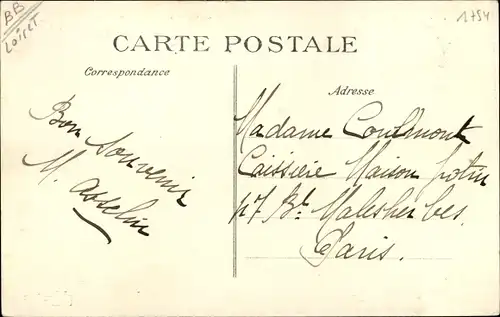 BB
Loiret
1754
CARTE POSTALE
Correspondance
Adresse
Bon Souvenir
M. Asselin
Madame Coulmont
Caissière Maison Potin
Bd Malesherbes
Paris.